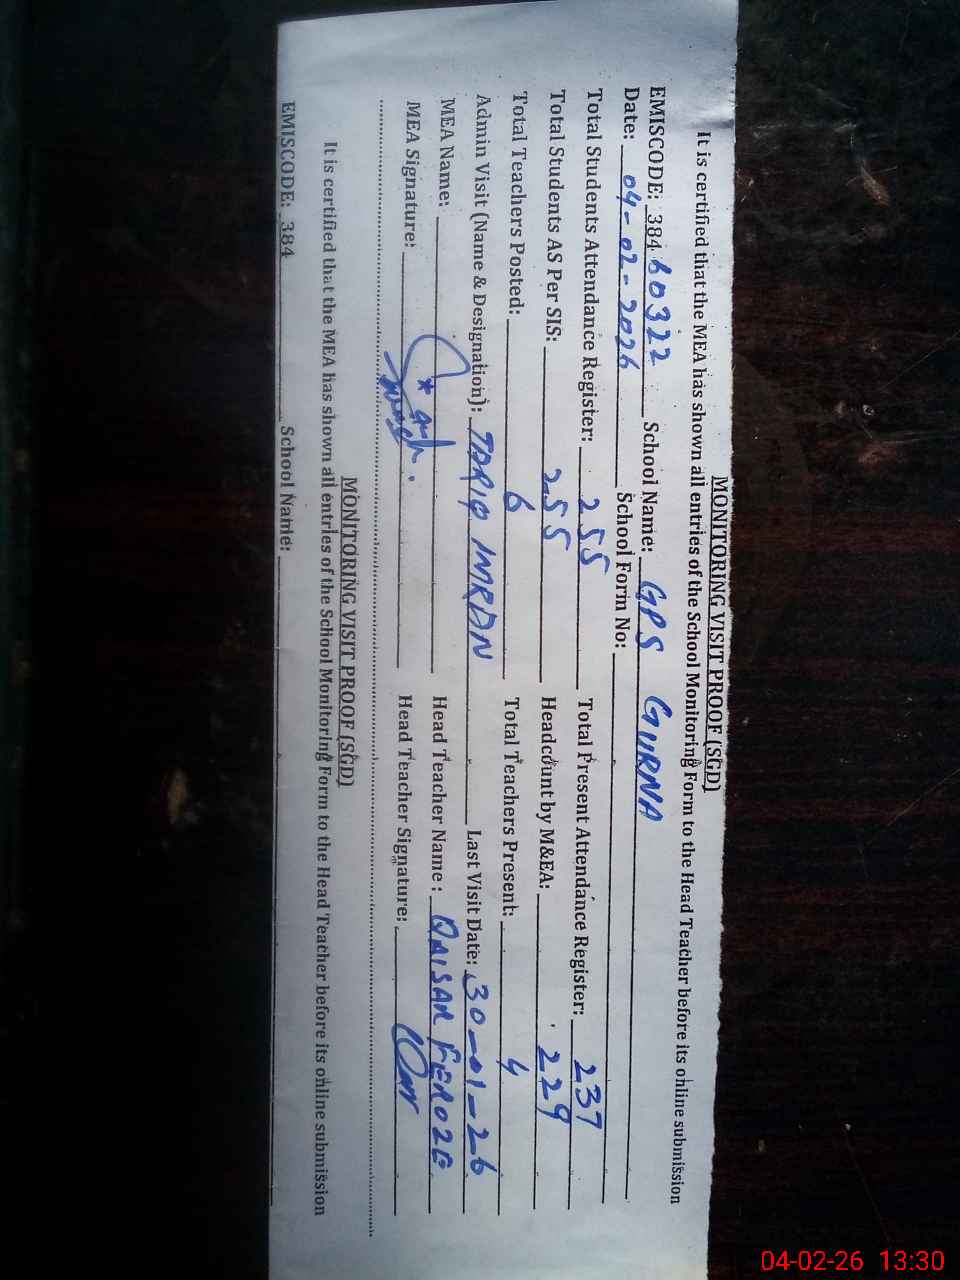 MONITORING VISIT PROOF (SGD)
It is certified that the MEA has shown all entries of the School Monitoring Form to the Head Teacher before its online submission
EMISCODE: 38460322 School Name: GPS GURNA
Date: 04-02-2026 School Form No:
Total Students Attendance Register: 255 Total Present Attendance Register: 237
Total Students AS Per SIS: 255 Headcount by M&EA: 229
Total Teachers Posted: 6 Total Teachers Present: 4
Admin Visit (Name & Designation): TARIQ IMRAN Last Visit Date: 30-01-26
MEA Name: Head Teacher Name : QAISAR FEROZE
MEA Signature: Head Teacher Signature:
MONITORING VISIT PROOF (SGD)
It is certified that the MEA has shown all entries of the School Monitoring Form to the Head Teacher before its online submission
EMISCODE: 384 School Name:
04-02-26 13:30